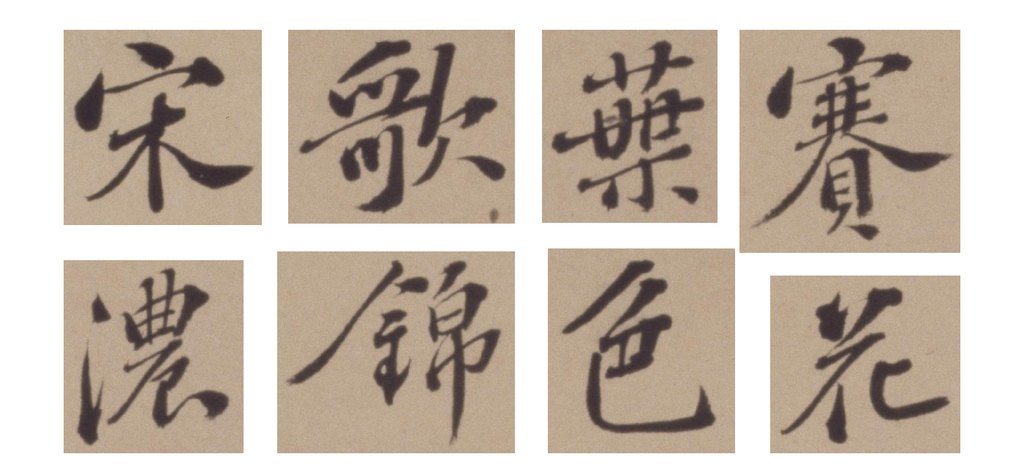 宋歌葉賽
濃錦色花